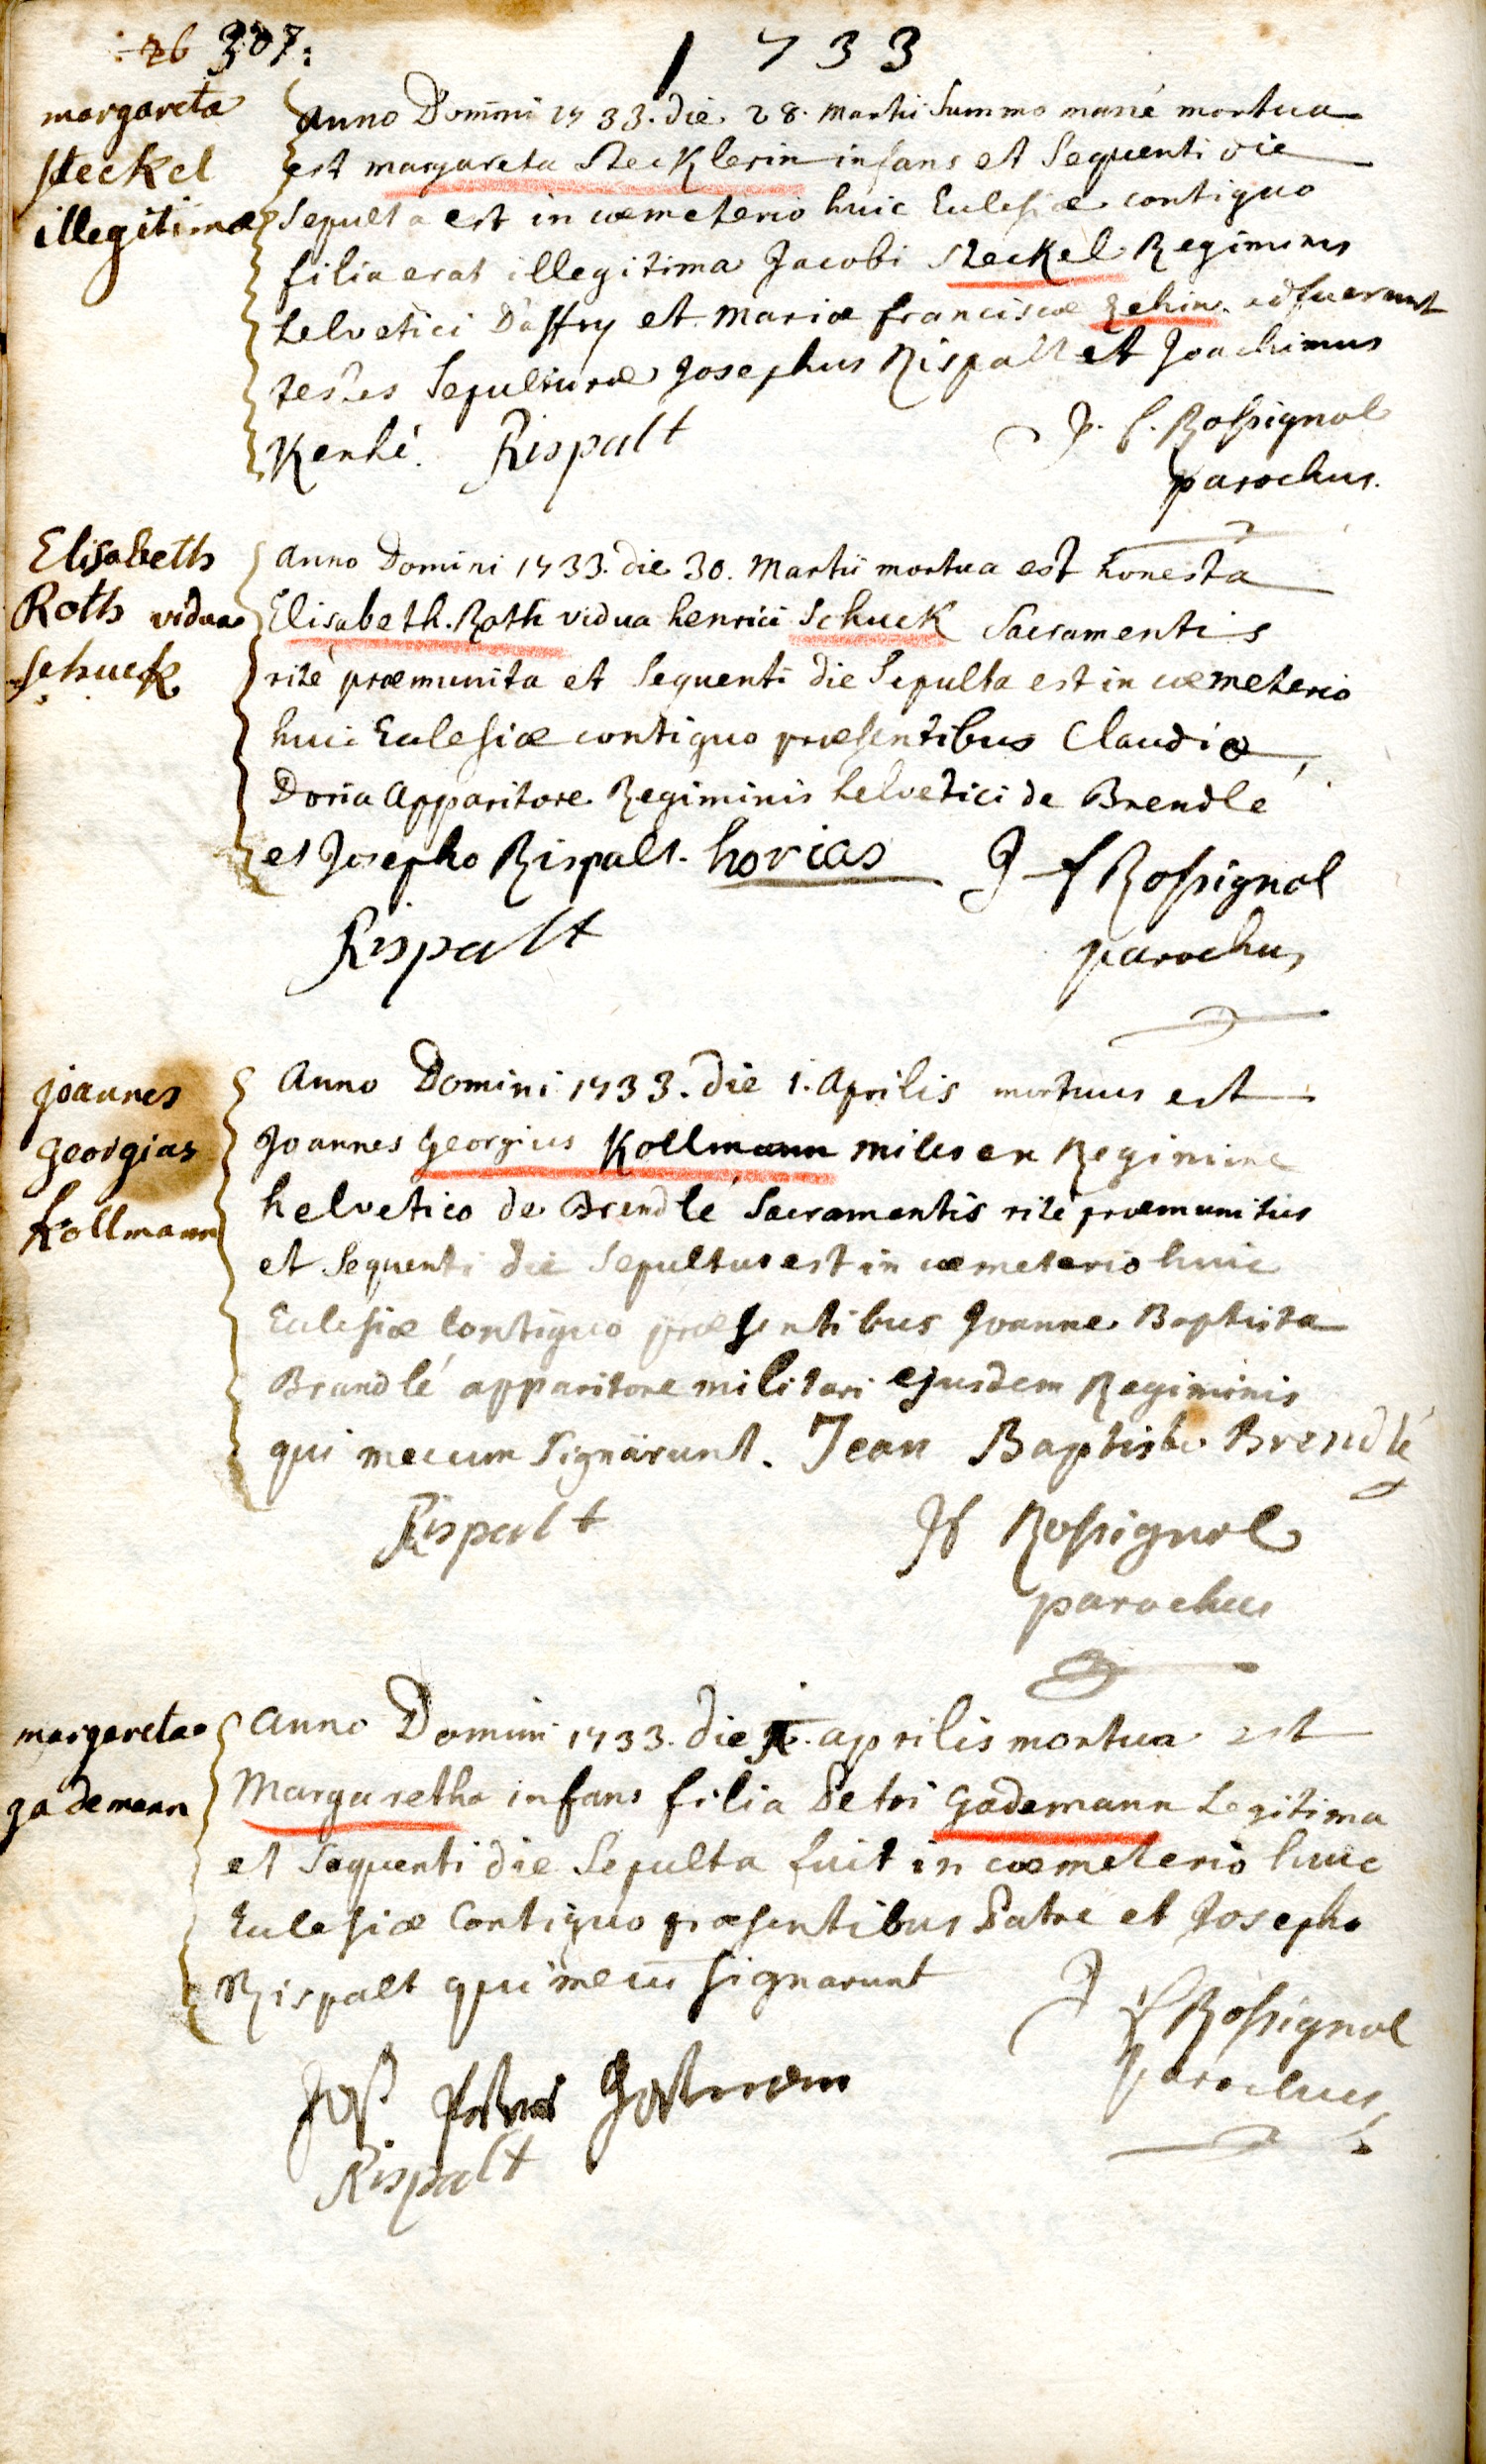 26 307:
1733
margareta
steckel
illegitima
Anno Domini 1733. die 28. Martii Summo mané mortua
est margareta Stecklerin infans et Sequenti die
Sepulta est in cœmeterio huic Eclesiæ contiguo
filia erat illegitima Jacobi Steckel Regiminis
helvetici Daffry et Mariæ franciscæ adfuerunt
testes Sepulturæ Josephus Rispalt et Joachimus
Kenhé. Rispalt
J. f. Rossignol
parochus.
Elisabeth
Roth vidua
schuck
Anno Domini 1733. die 30. Martii mortua est honesta
Elisabeth. Roth vidua henrici Schuck Sacramentis
rité præmunita et Sequenti die Sepulta est in cœmeterio
huic Eclesiæ contiguo præsentibus Claudio
Doria Apparitore Regiminis helvetici de Brendlé
et Josepho Rispalt. horias
J f Rossignol
Rispalt
parochus
joannes
georgius
Kollmann
Anno Domini 1733. die 1. Aprilis mortuus est
Joannes Georgius Kollmann miles ex Regimine
helvetico de Brendlé Sacramentis rité præmunitus
et Sequenti die Sepultus est in cœmeterio huic
Eclesiæ Contiguo præsentibus Joanne Baptista
Brandlé apparitore militari ejusdem Regiminis
qui mecum Signarunt. Jean Baptiste Brendlé
Rispalt
Jf Rossignol
parochus
margareta
gademann
Anno Domini 1733. die aprilis mortua est
Margaretha infans filia Petri Gademann Legitima
et Sequenti die Sepulta fuit in cœmeterio huic
Eclesiæ Contiguo præsentibus Patre et Josepho
Rispalt qui mecū signarunt
J f Rossignol
parochus
Rispalt